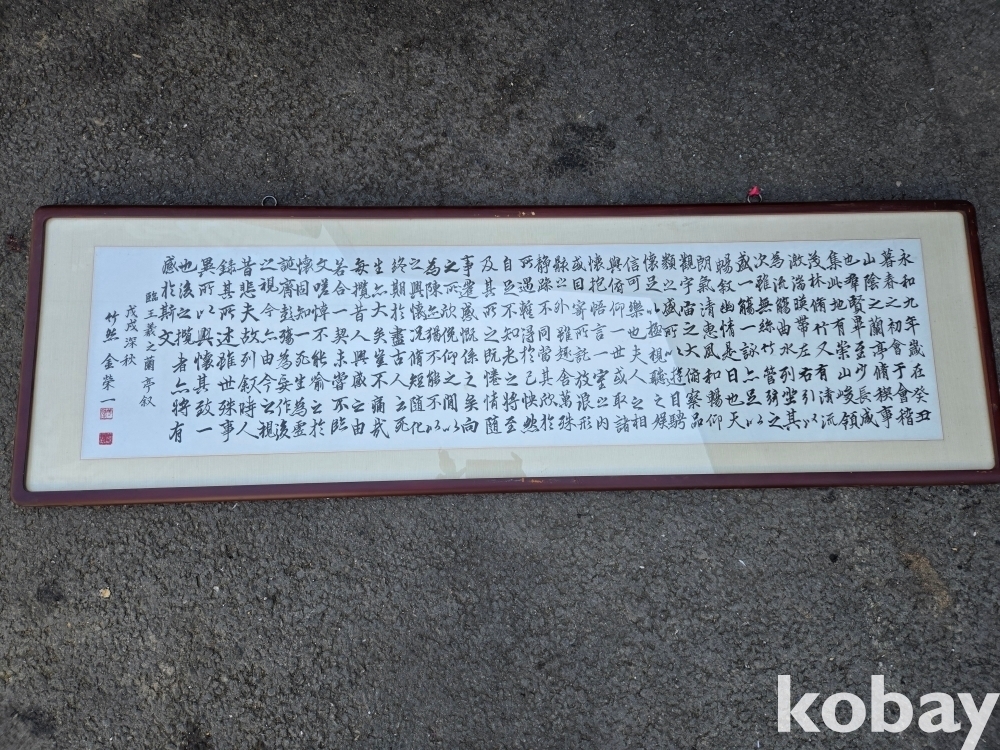 永和九年歲在癸丑
暮春之初會于會稽
山陰之蘭亭脩稧事
也群賢畢至少長咸
集此地有崇山峻領
茂林脩竹又有清流
激湍暎帶左右引以
為流觴曲水列坐其
次雖無絲竹管弦之
盛一觴一詠亦足以
暢叙幽情是日也天
朗氣清惠風和暢仰
觀宇宙之大俯察品
類之盛所以遊目騁
懷足以極視聽之娛
信可樂也夫人之相
與俯仰一世或取諸
懷抱悟言一室之內
或因寄所託放浪形
骸之外雖趣舍萬殊
靜躁不同當其欣於
所遇暫得於己快然
自足不知老之將至
及其所之既惓情隨
事遷感慨係之矣向
之所欣俛仰之閒以
為陳迹猶不能不以
之興懷況脩短隨化
終期於盡古人云死
生亦大矣豈不痛哉
每攬昔人興感之由
若合一契未嘗不臨
文嗟悼不能喻之於
懷固知一死生為虛
誕齊彭殤為妄作後
之視今亦由今之視
昔悲夫故列叙時人
錄其所述雖世殊事
異所以興懷其致一
也後之攬者亦將有
感於斯文
臨王羲之蘭亭叙
戊戌深秋
竹然 金榮一
kobay